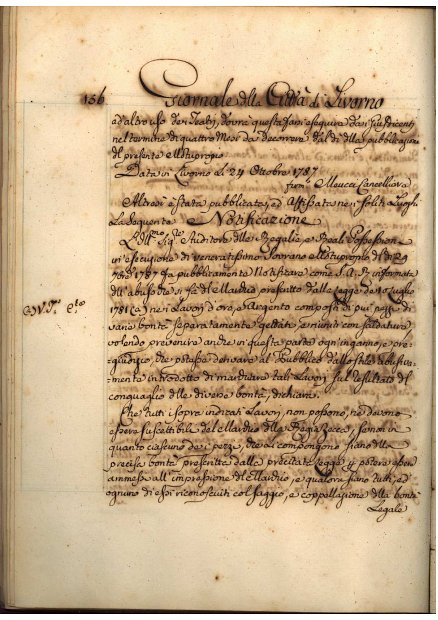 136 Giornale della Città di Livorno
ed altro uso dei Teatri, dovrà questa farsi eseguire dai
nel termine di quattro Mesi da decorrere dal dì della pubblicazione
del presente Motuproprio.
Data in Livorno li 24 Ottobre 1787
firm.
Altresì è stata pubblicata, ed Affissata nei soliti Luoghi
La seguente Notificazione
L'Ill.mo Sig.re Auditore delle Regalie e Reali Possessioni
in esecuzione di veneratissimo Sovrano Motuproprio de' 29
1787 fa pubblicamente Notificare come S.A.R. informata
dell'abuso di Marchio prescritto dalla Legge de' Luglio
1781 (a) nei Lavori d'oro, e Argento composti di più pezzi di
varie bontà separatamente gettati, e riuniti con saldatura,
volendo prevenire anche in questa parte ogni inganno, e pre-
=giudizio, che potesse derivare al Pubblico dallo stile abusiva-
=mente introdotto di marchiare tali Lavori sul resultato del
conguaglio delle diverse bontà, dichiara.
Che tutti i sopra indicati Lavori, non possono, nè devono
essere suscettibili del Marchio della Regia Zecca, se non in
quanto ciascuno dei pezzi, che li compongono siano della
precisa bontà prescritta dalla precitata Legge p potere esser
ammessi all'impressione del Marchio, e qualora siano tutti, ed
ognuno di essi riconosciuti col saggio, e coppellazione della bontà
Legale